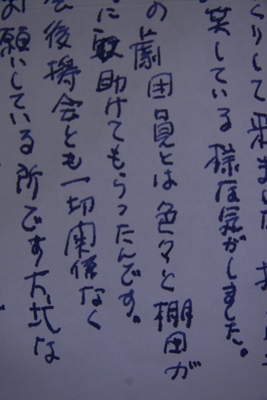 りして来ました
笑している様な気がしました。
の劇団員とは色々と棚田が
に助けてもらったんです。
後援会とも一切関係なく
お願いしている所です